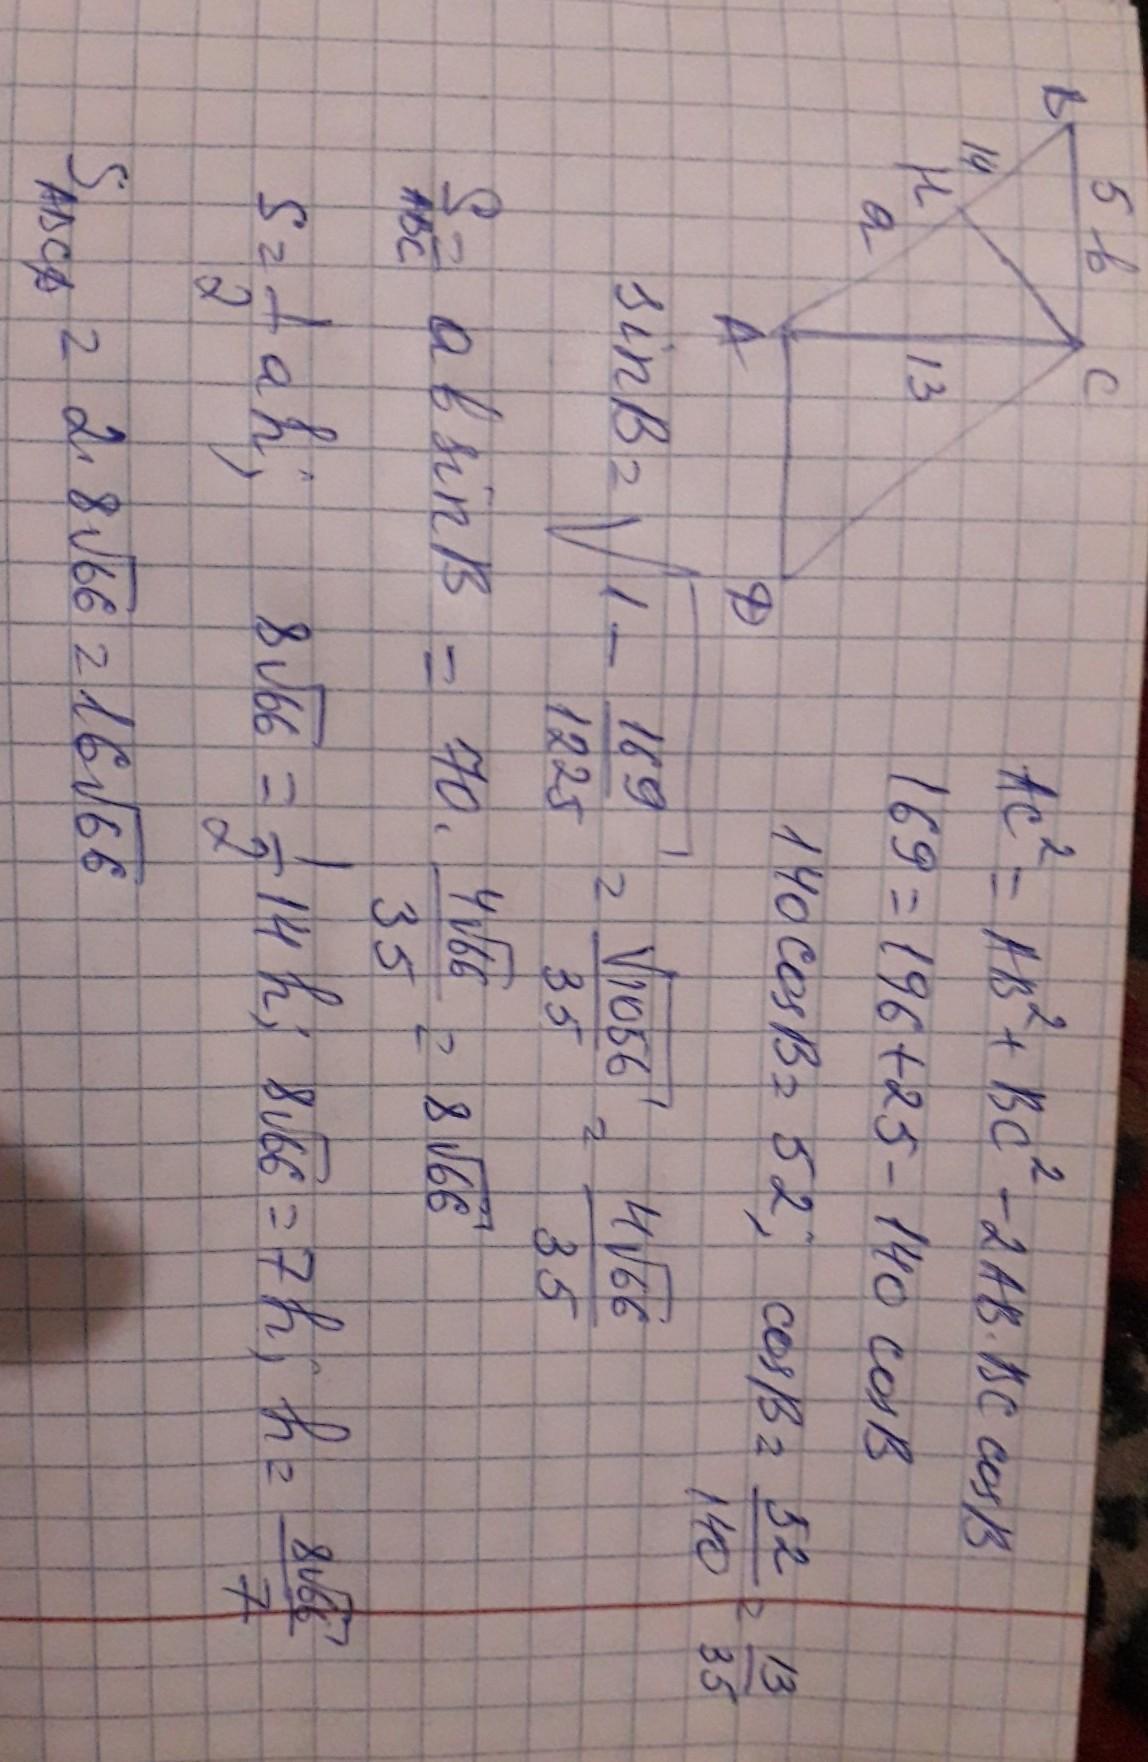 B 5 b C
14 H a 13
A D
AC² = AB² + BC² - 2AB·BC cosB
169 = 196 + 25 - 140 cosB
140 cosB = 52; cosB = 52/140 = 13/35
sinB = √(1 - 169/1225) = √1056/35 = 4√66/35
S ABC = ab sinB = 70 · 4√66/35 = 8√66
S = 1/2 ah; 8√66 = 1/2 14h; 8√66 = 7h; h = 8√66/7
S ABCD = 2·8√66 = 16√66